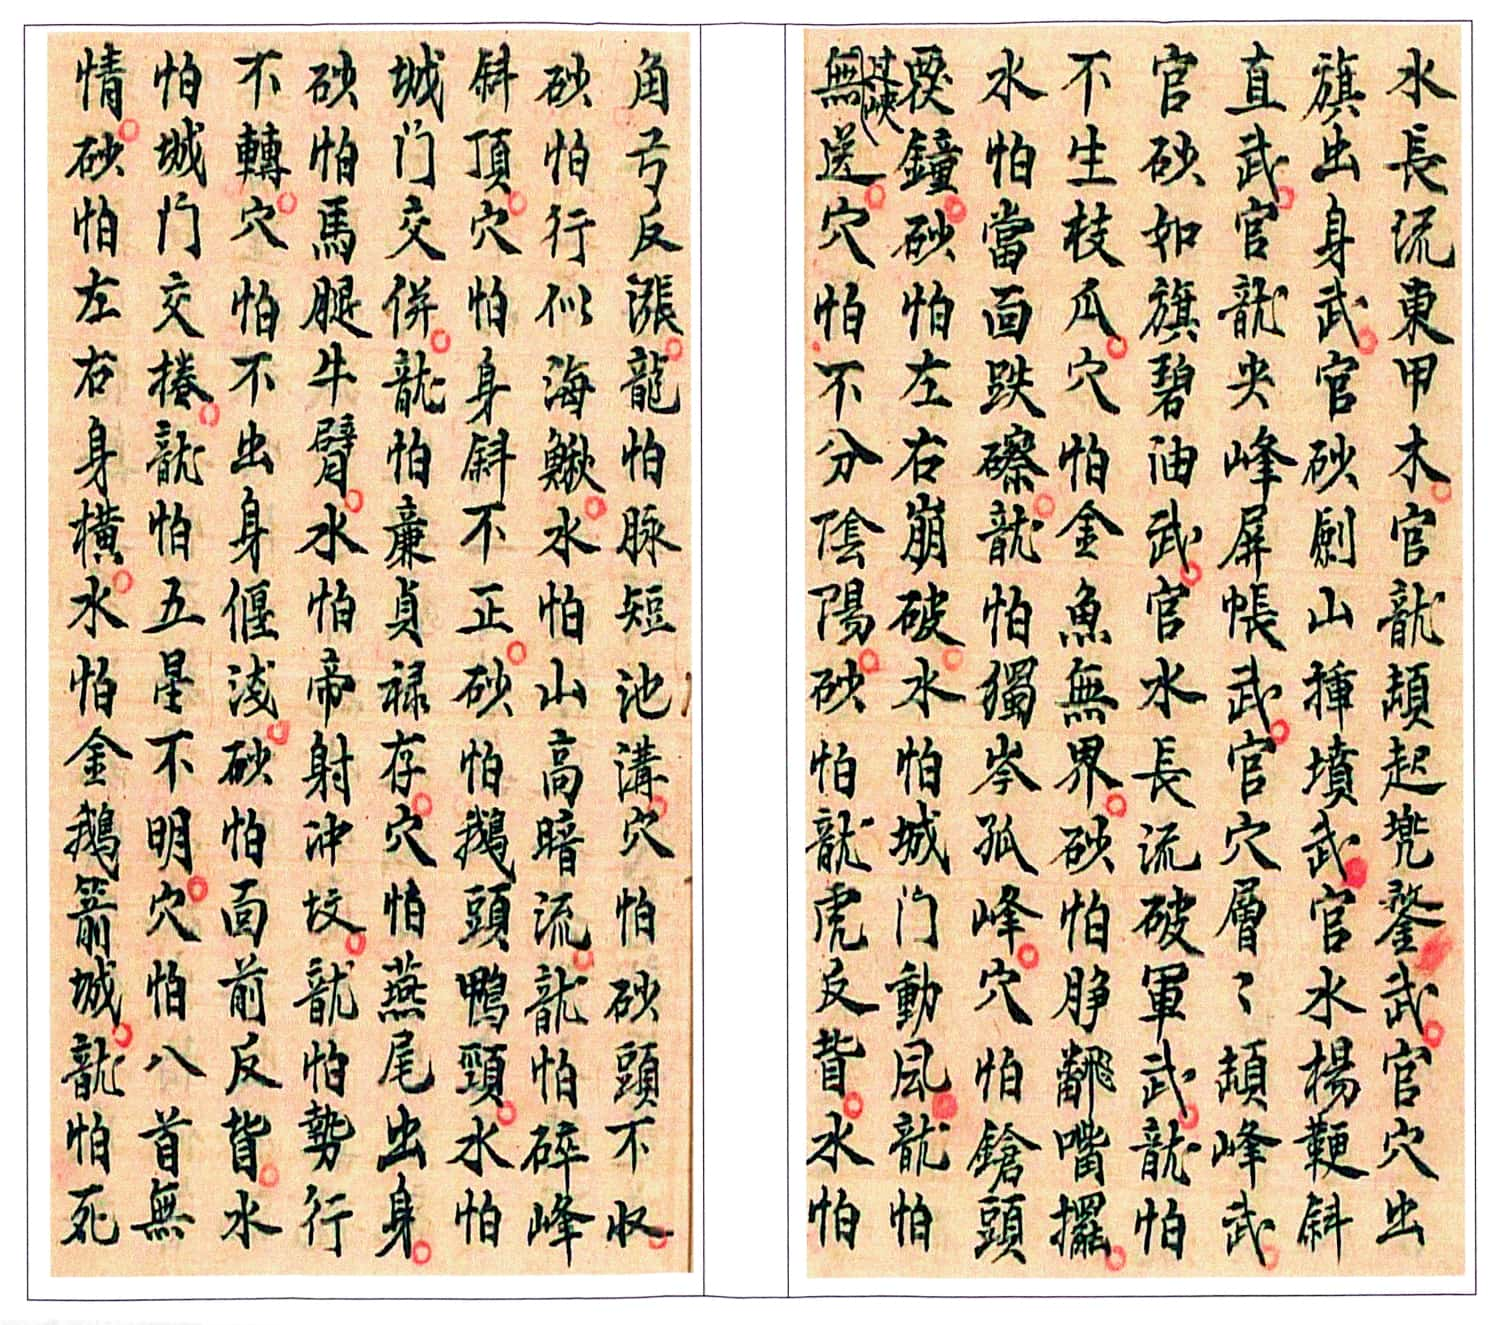 水長流東甲木官龍頡起兠鍪武官穴出
旗出身武官砂劍山揷墳武官水楊鞭斜
直武官龍尖峰屏帳武官穴層〻頡峰武
官砂如旗碧油武官水長流破軍武龍怕
不生枝瓜穴怕金魚無界砂怕脖翻嘴擺
水怕當面跌礤龍怕獨岑孤峰穴怕鎗頭
覆鐘砂怕左右崩破水怕城门動風龍怕
過峽無送穴怕不分陰陽砂怕龍虎反背水怕
角弓反漲龍怕脉短池溝穴怕砂頭不收
砂怕行似海鰍水怕山高暗流龍怕碎峰
斜頂穴怕身斜不正砂怕鵝頭鴨頸水怕
城门交併龍怕廉貞禄存穴怕燕尾出身
砂怕馬腿牛臂水怕帝射冲坟龍怕勢行
不轉穴怕不出身偃淺砂怕面前反背水
怕城门交捲龍怕五星不明穴怕八首無
情砂怕左右身橫水怕金鵝箭城龍怕死